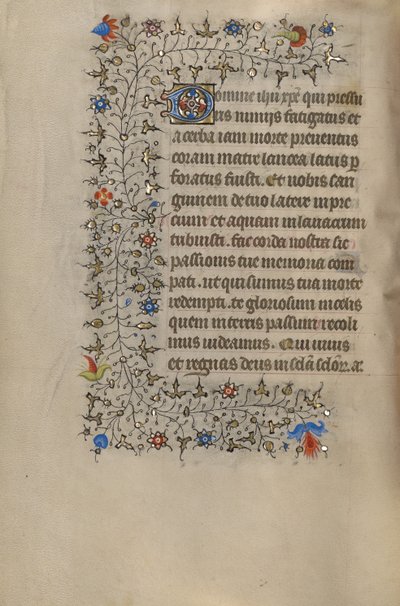 Domine ihu xpe qui pressu
ris nimijs fatigatus et
acerba iam morte preuentus
coram matre lancea latus p
foratus fuisti. Et nobis san
guinem de tuo latere in pre
cium et aquam in lauacrum
tribuisti. fac corda nostra sic
passionis tue memoria com
pati. ut qui sumus tua morte
redempti. te gloriosum in celis
quem in terris passum recoli
mus uideamus. Qui uiuis
et regnas deus in scla sclor. a.